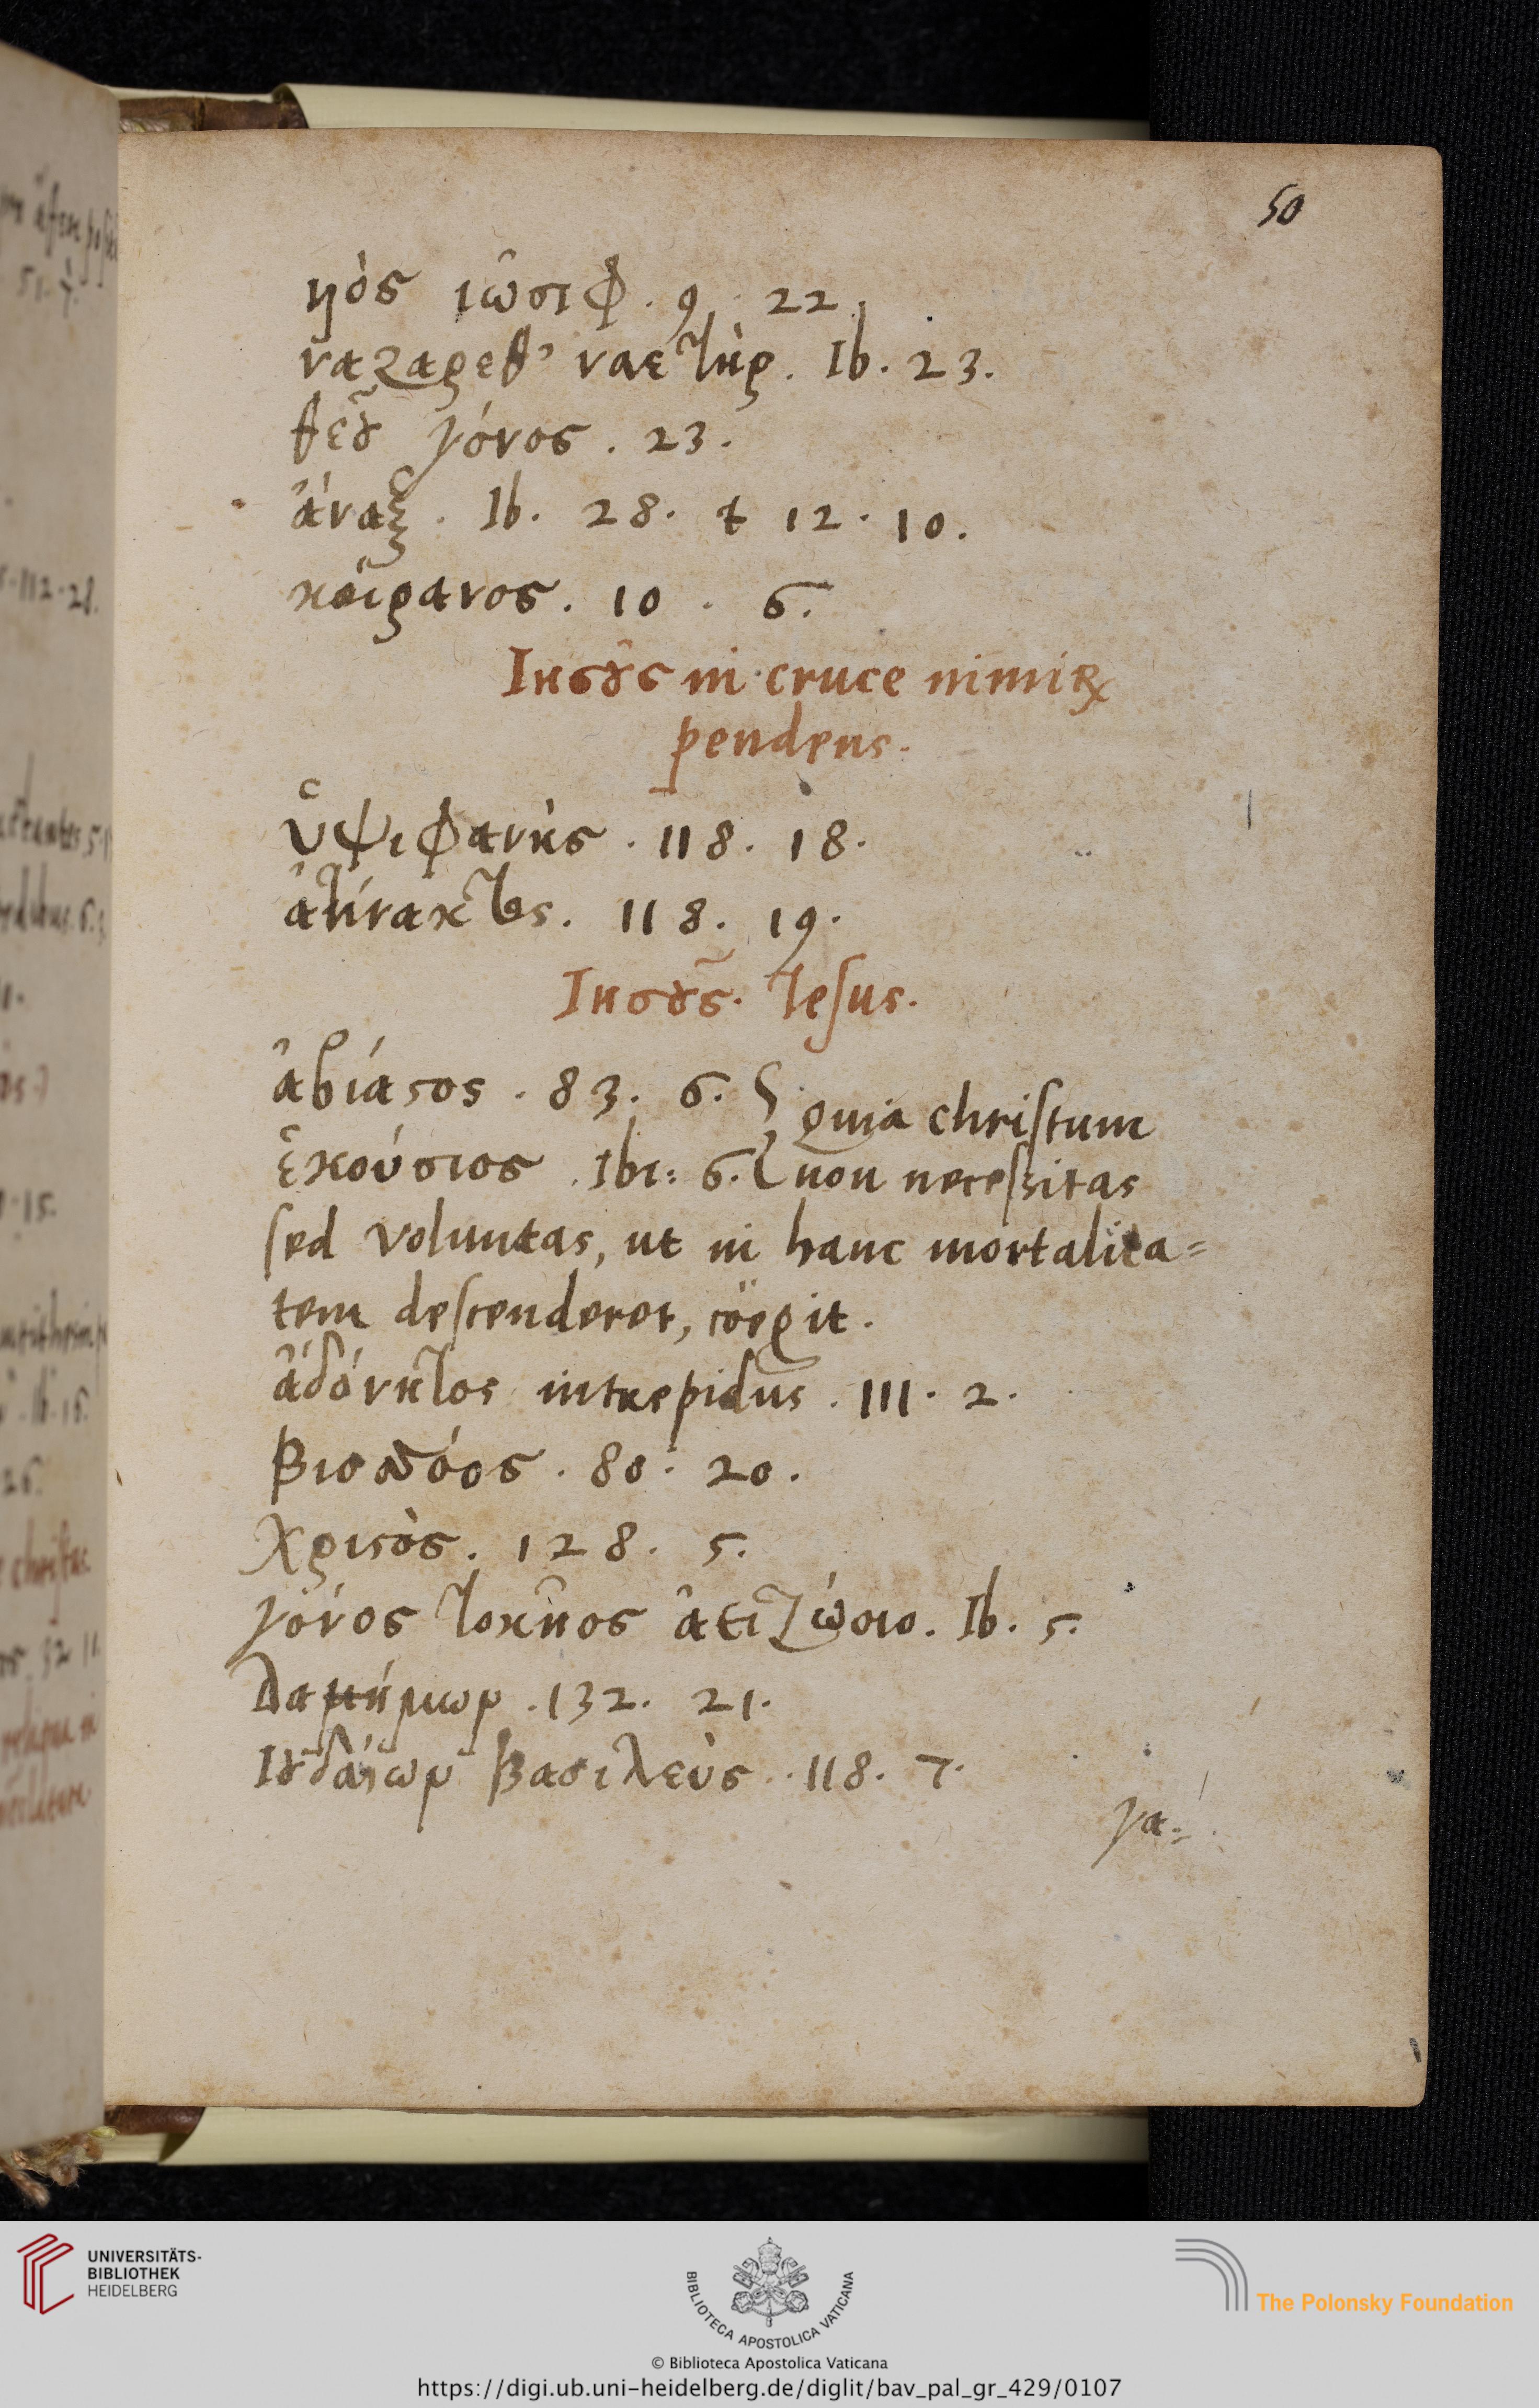 50
υἱὸς ἰωσὶφ. 9. 22.
ναζαρὲθ' ναετὴρ. Ib. 23.
θεοῦ γόνος. 23.
ἄναξ. Ib. 28. & 12. 10.
κοίρανος. 10. 6.
Ιησοῦς in cruce nimirum
pendens.
ὑψιφανής. 118. 18.
ἀτίνακτος. 118. 19.
Ιησοῦς. Iesus.
ἀβίαστος. 83. 6. quia christum
ἑκούσιος. Ibi: 6. non necessitas
sed voluntas, ut in hanc mortalita=
tem descenderet, cöegit.
ἀδόνητος intrepidus. 111. 2.
βιοσσόος. 80. 20.
χριστὸς. 128. 5.
γόνος τοκῆος ἀειζώοιο. Ib. 5.
δαήμων. 132. 21.
Ιουδαίων βασιλεὺς. 118. 7.
γα=
UNIVERSITÄTS-
BIBLIOTHEK
HEIDELBERG
BIBLIOTECA APOSTOLICA VATICANA
The Polonsky Foundation
© Biblioteca Apostolica Vaticana
https://digi.ub.uni-heidelberg.de/diglit/bav_pal_gr_429/0107